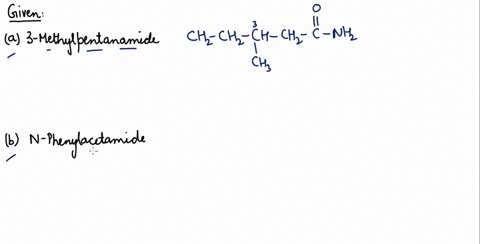 Given:
(a) 3-Methylpentanamide
O
3
CH2-CH2-CH-CH2-C-NH2
CH3
(b) N-Phenylacetamide